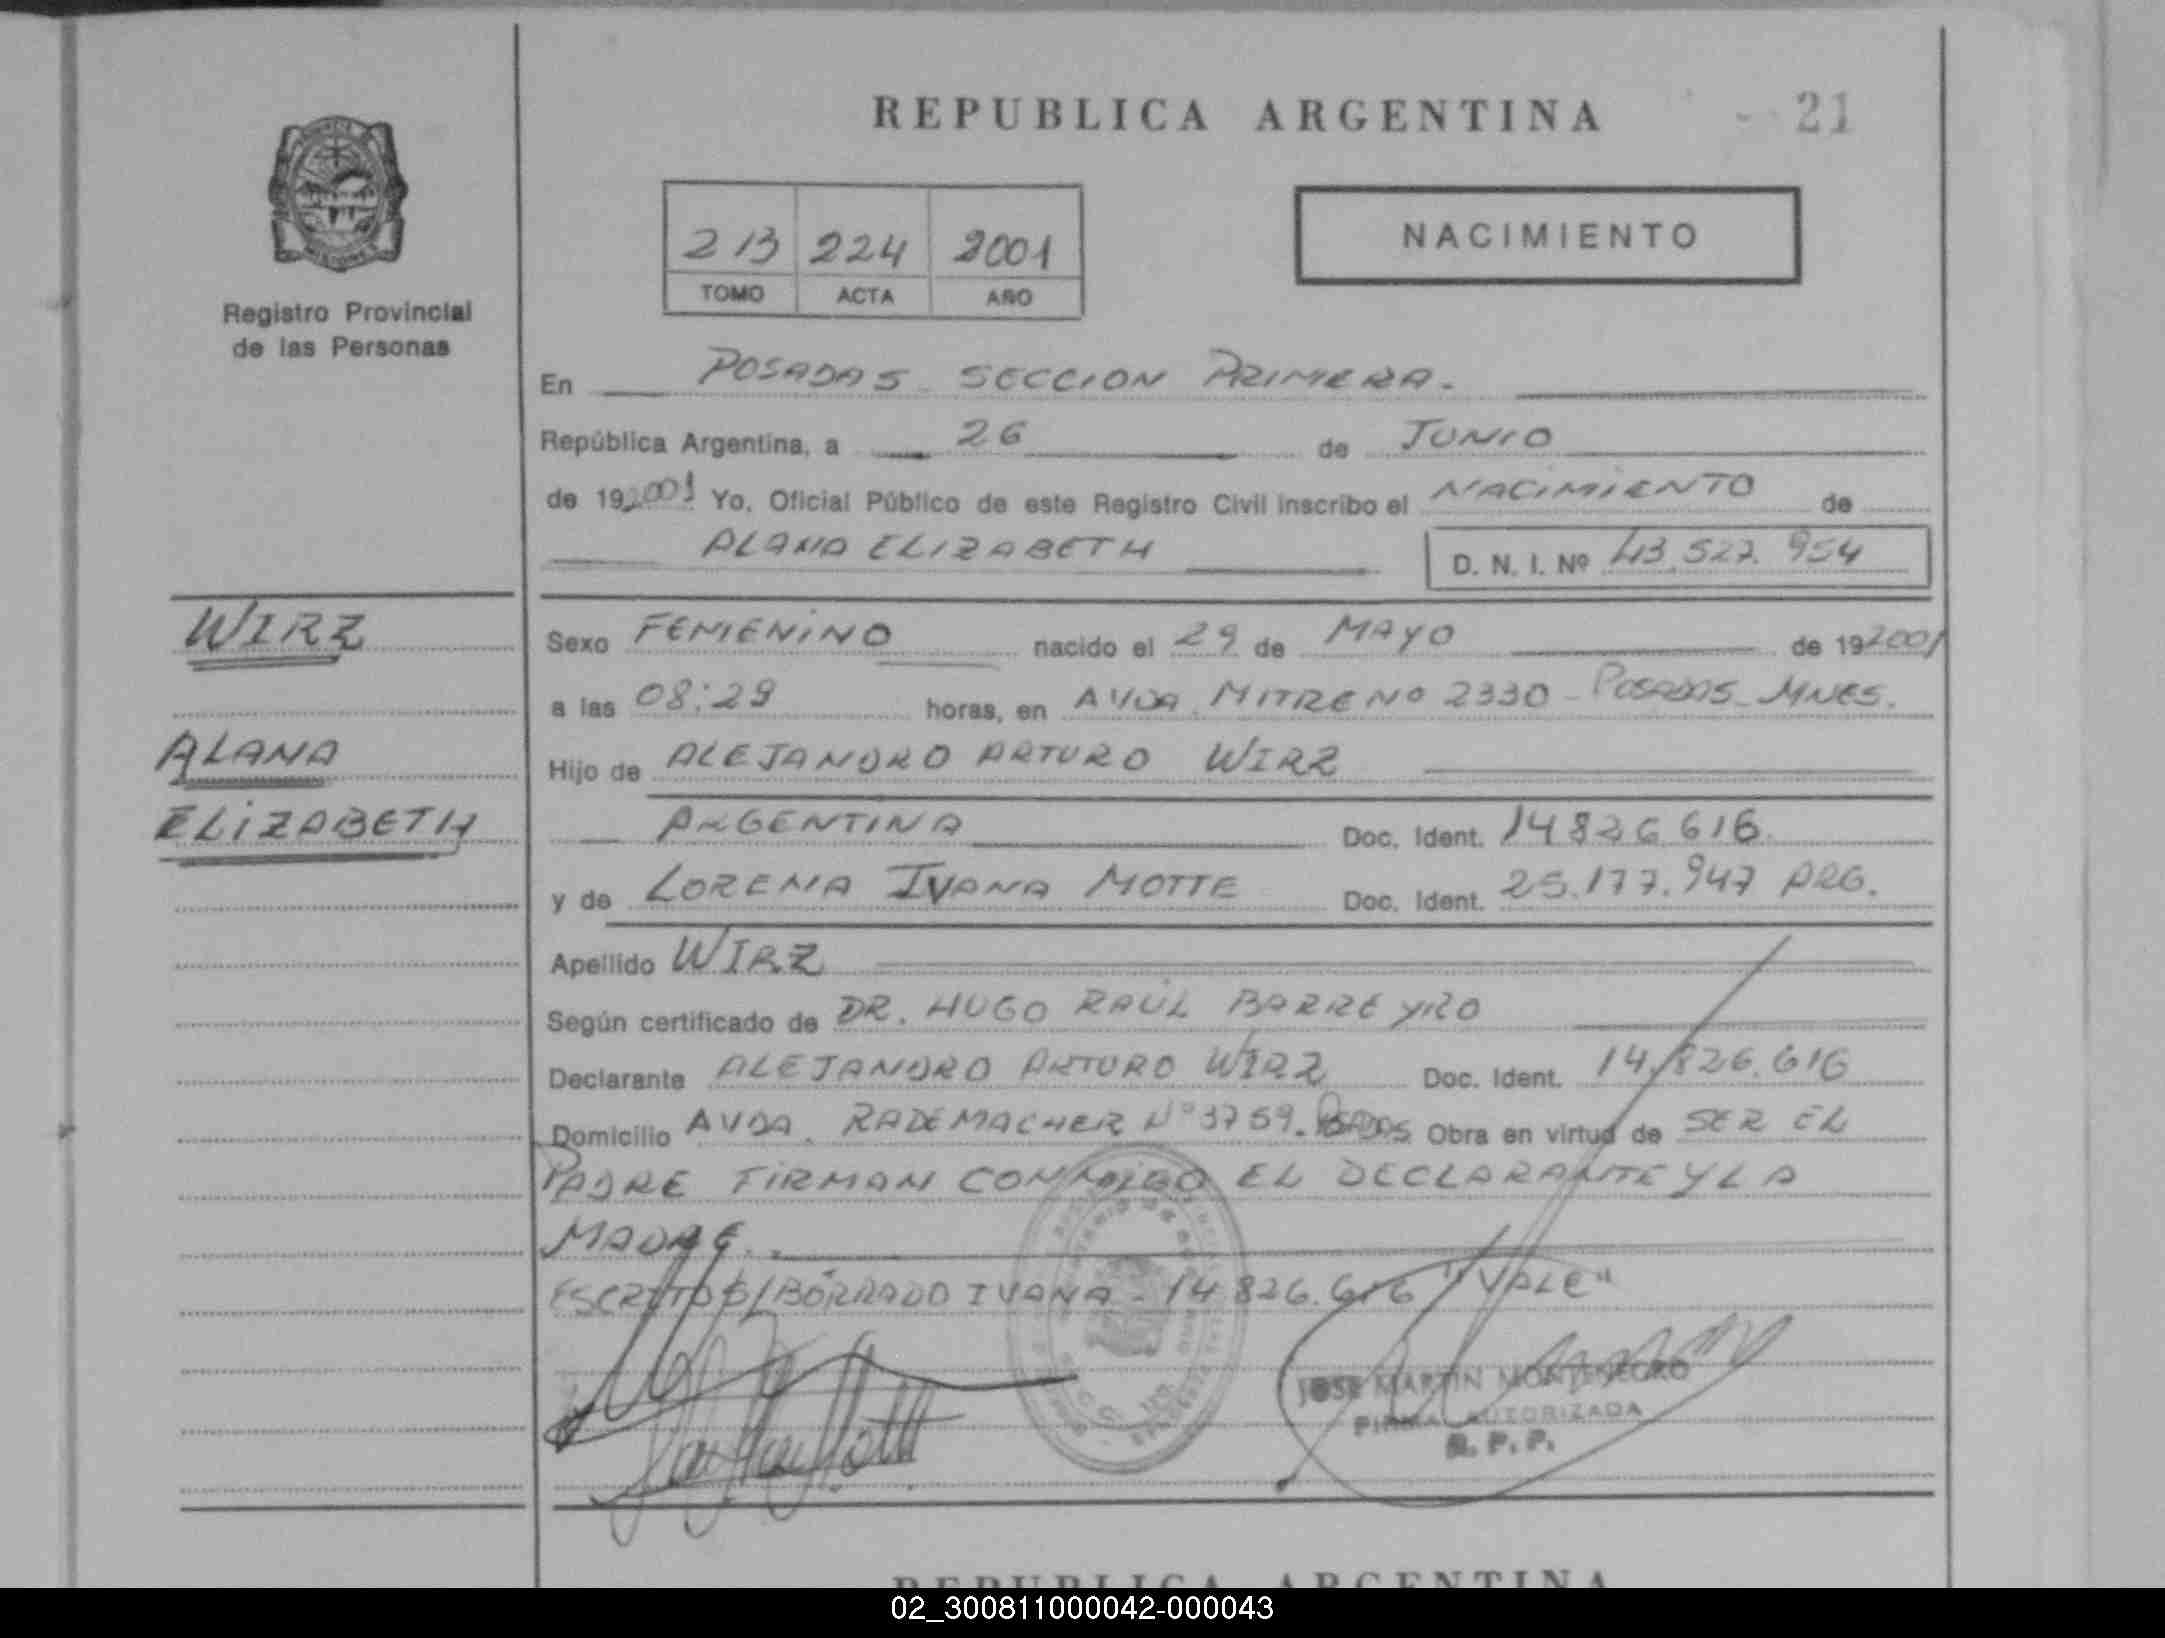 REPUBLICA ARGENTINA
21
213 224 2001
TOMO ACTA AÑO
NACIMIENTO
Registro Provincial
de las Personas
En POSADAS SECCION PRIMERA.
República Argentina, a 26 de JUNIO
de 192001 Yo, Oficial Público de este Registro Civil inscribo el NACIMIENTO de
ALANA ELIZABETH D. N. I. Nº 43.527.954
WIRZ
Sexo FEMENINO nacido el 29 de MAYO de 192001
a las 08:29 horas, en AVDA. MITRE Nº 2330 - POSADAS - MNES.
ALANA
Hijo de ALEJANDRO ARTURO WIRZ
ELIZABETH
ARGENTINA Doc. Ident. 14826616.
y de LORENA IVANA MOTTE Doc. Ident. 25.177.947 ARG.
Apellido WIRZ
Según certificado de DR. HUGO RAÚL BARREYRO
Declarante ALEJANDRO ARTURO WIRZ Doc. Ident. 14.826.616
Domicilio AVDA. RADEMACHER Nº 3759. POSADAS Obra en virtud de SER EL
PADRE FIRMAN CONMIGO EL DECLARANTE Y LA
MADRE.
ESCRITO S/BORRADO IVANA - 14.826.616 "VALE"
JOSE MARTIN MONTENEGRO
FIRMA AUTORIZADA
R. P. P.
REPUBLICA ARGENTINA
02_300811000042-000043